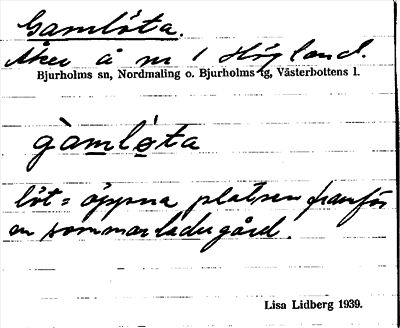 Gamlöta.
Åker å nr 1 Högland.
Bjurholms sn, Nordmaling o. Bjurholms tg, Västerbottens l.
gàmlo̱ta
löt = öppna platsen framför
en sommarladugård.
Lisa Lidberg 1939.